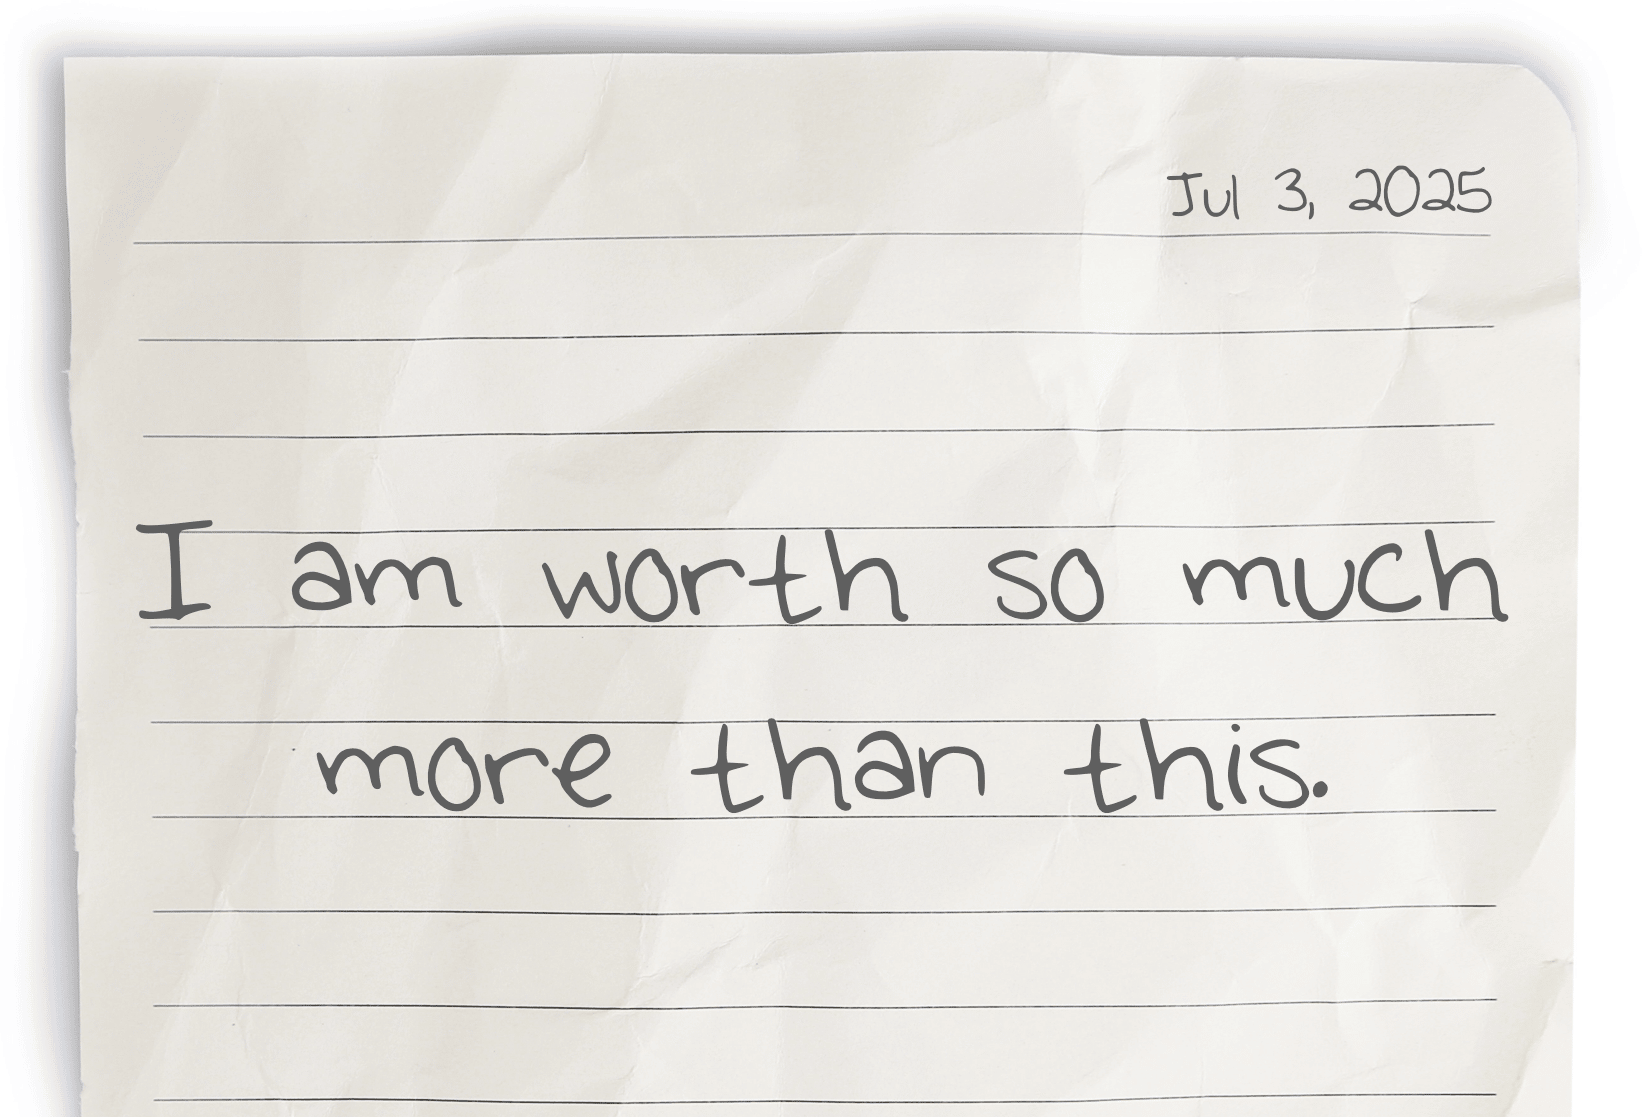 Jul 3, 2025
I am worth so much
more than this.